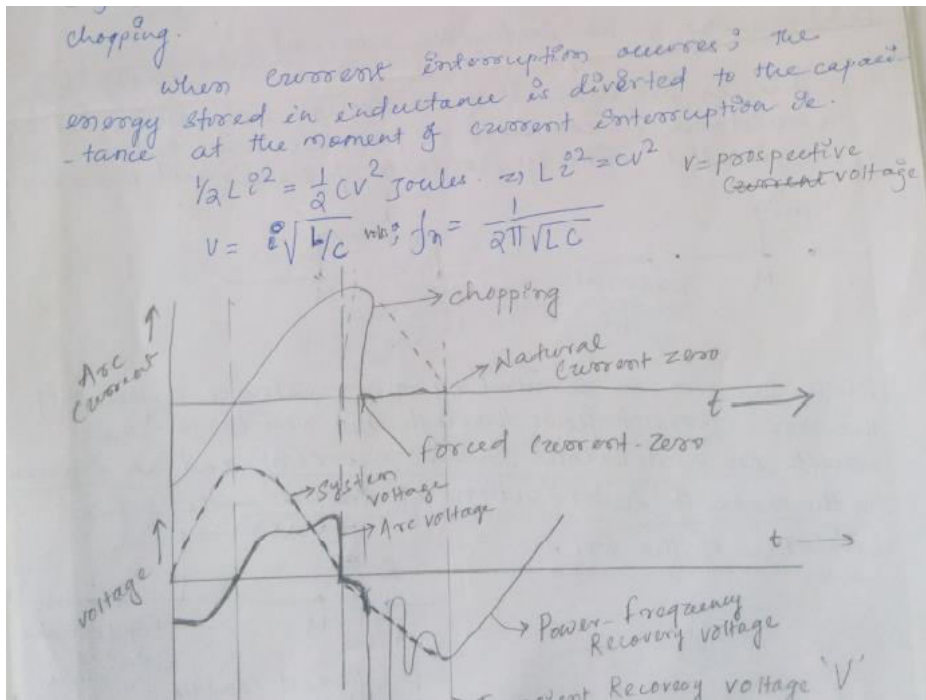 chopping.
When current interruption occures; the
energy stored in inductance is diverted to the capaci-
-tance at the moment of current interruption ie.
1/2 Li² = 1/2 CV² Joules. => Li² = CV²
V = prospective
current voltage
V = i√L/C volts; fn = 1/2π√LC
Arc
Current
chopping
Natural
Current zero
t
forced Current-zero
system
voltage
Arc voltage
t
voltage
Power-frequency
Recovery voltage
Recovery voltage 'V'